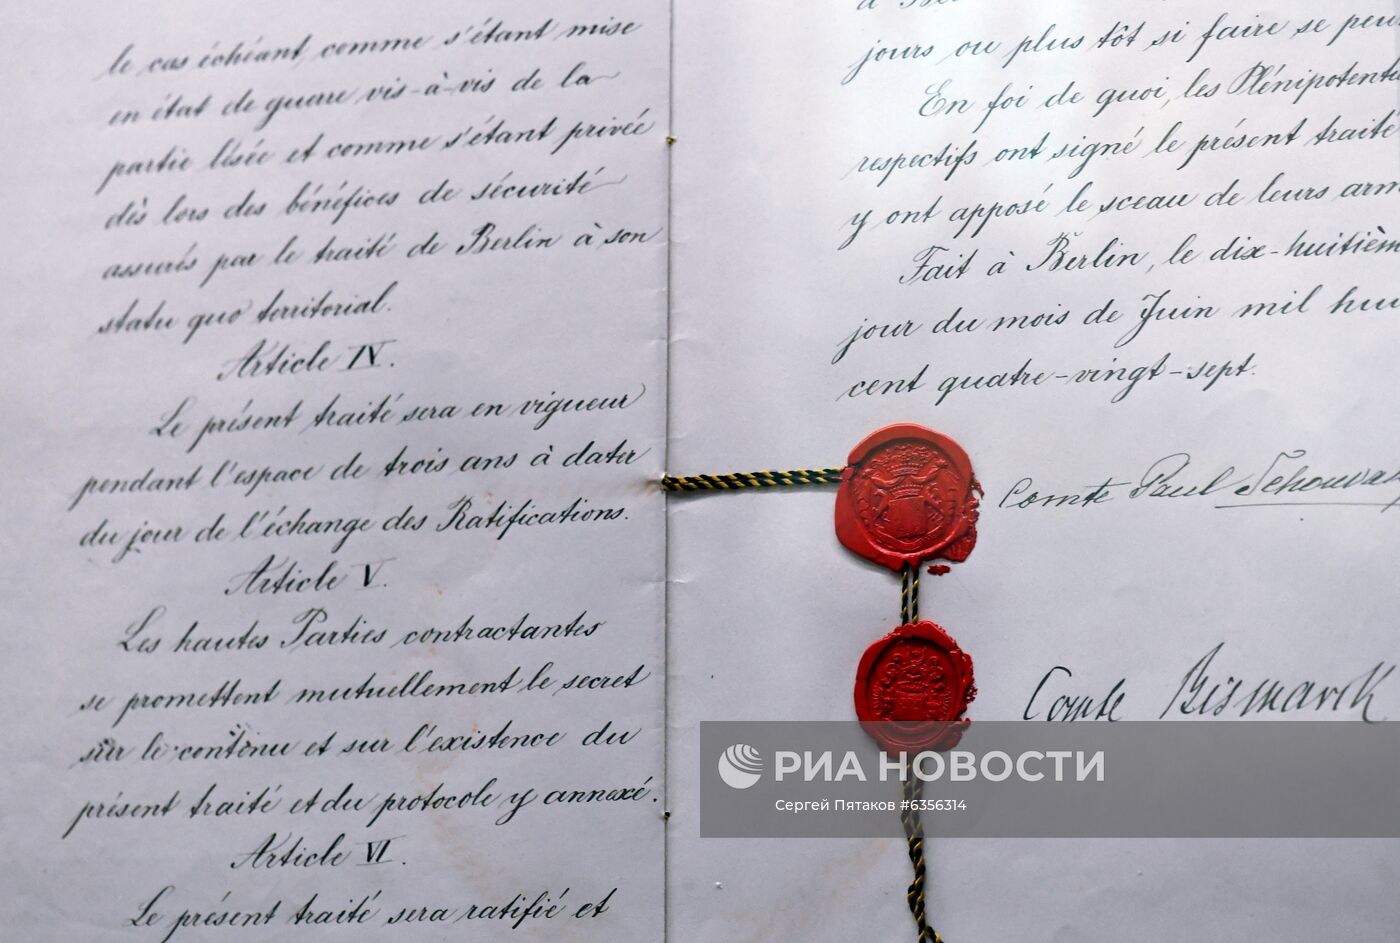 le cas échéant, comme s'étant mise
en état de guerre vis-à-vis de la
partie lésée et comme s'étant privée
dès lors des bénéfices de sécurité
assurés par le traité de Berlin à son
statu quo territorial.
Article IV.
Le présent traité sera en vigueur
pendant l'espace de trois ans à dater
du jour de l'échange des Ratifications.
Article V.
Les hautes Parties contractantes
se promettent mutuellement le secret
sur le contenu et sur l'existence du
présent traité et du protocole y annexé.
Article VI.
Le présent traité sera ratifié et
jours ou plus tôt si faire se peu
En foi de quoi, les Plénipotenti
respectifs ont signé le présent traité
y ont apposé le sceau de leurs arm
Fait à Berlin, le dix-huitièm
jour du mois de Juin mil hui
cent quatre-vingt-sept.
Comte Paul Schouval
Comte Bismarck
РИА НОВОСТИ
Сергей Пятаков #6356314